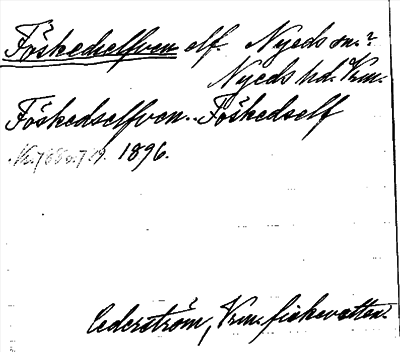 Föskedselfven elf. Nyeds sn.?
Nyeds hd. Vrm.
Föskedselfven.. Föskedself
1896.
Cederström, Vrm. fiskevatten.